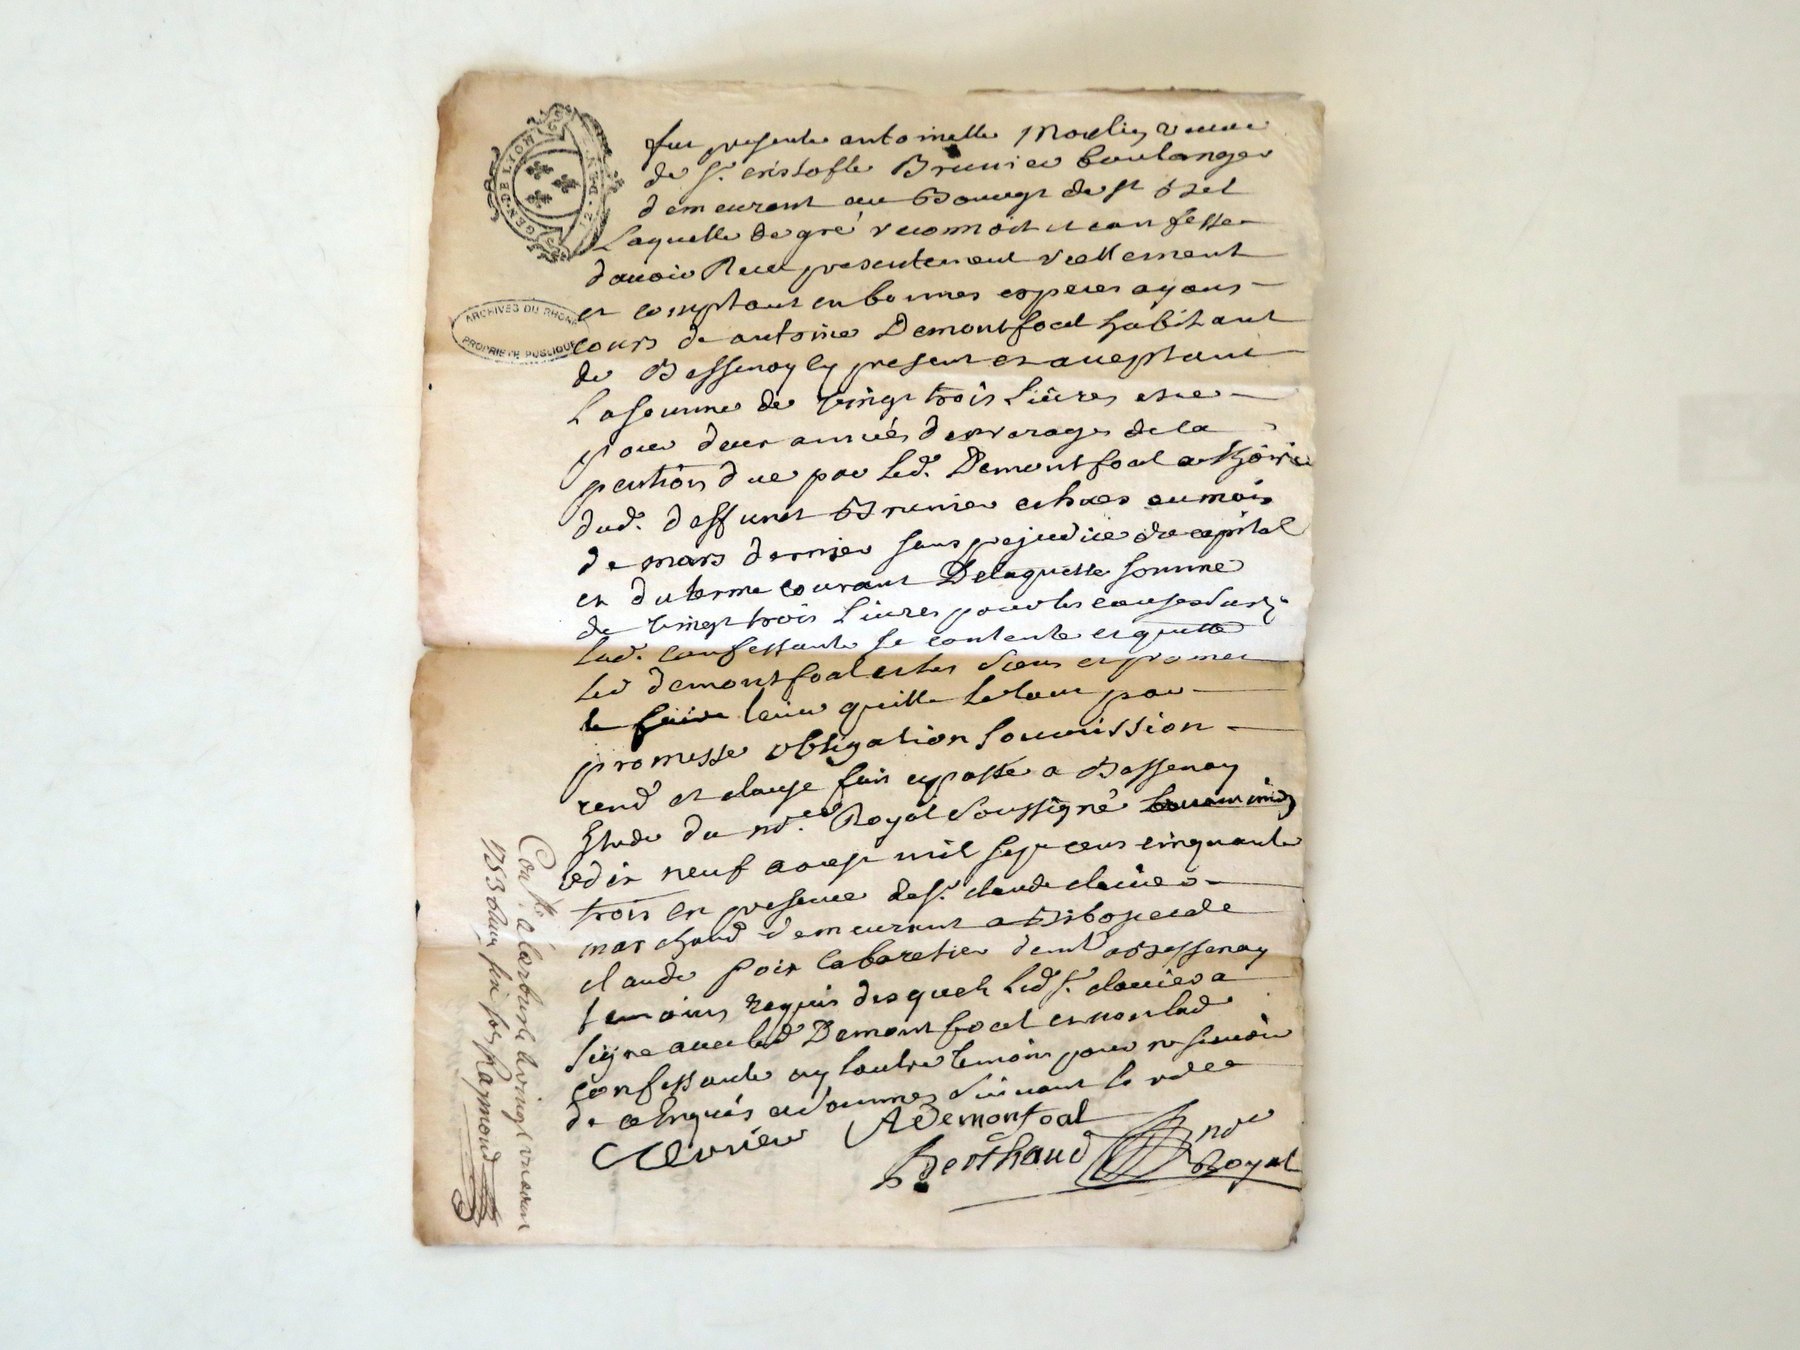 GEN. DE LYON
2. S. D.
ARCHIVES DU RHONE
PROPRIETE PUBLIQUE
fut presente antoinette Moulin veuve
de Sr. cristofle Brunier boulanger
demeurant au Bourgt de St
Laquelle de gré reconnoit et confesse
d'avoir Receu presentement reellement
et comptant en bonnes especes ayans
cours de antoine Demontfoal habitant
de Bessenay present et acceptant
La somme de vingt trois Livres et ce
pour deux années d'arrerages de la
pention due par led. Demontfoal a
dud. deffunct Brunier echues au mois
de mars dernier sans prejudice du capital
et du terme courant De laquelle somme
de vingt trois Livres pour les causes
lad. confessante se contente et quitte
led demontfoal et les siens et promet
le faire tenir quitte le tout par
promesse obligation soumission
rend et clause fait et passé a Bessenay
Etude du nore Royal soussigné
dix neuf aoust mil sept cens cinquante
trois en presence de Sr. claude
marchand demeurant a et de
claude cabaretier demt a Bessenay
temoins requis desquels led Sr. a
signé avec led Demontfoal et non lad
confessante ny l'autre temoin pour ne scavoir
de ce enquis et sommes suivant l'ordce
ADemontfoal
Berthaud nore
Royal
Conllé à Larbresle le vingt un aoust
1753 Reçu six sols Raymond